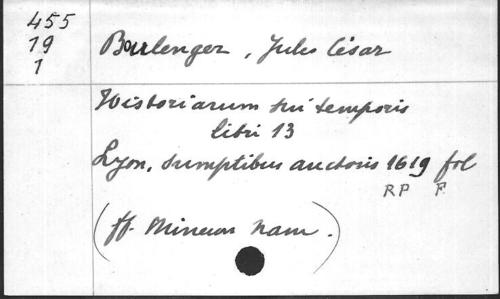 455
19
1
Boulenger, Jules César
Historiarum sui temporis
libri 13
Lyon, sumptibus auctoris 1619 fol
RP F
(ff. Minum Nam.)